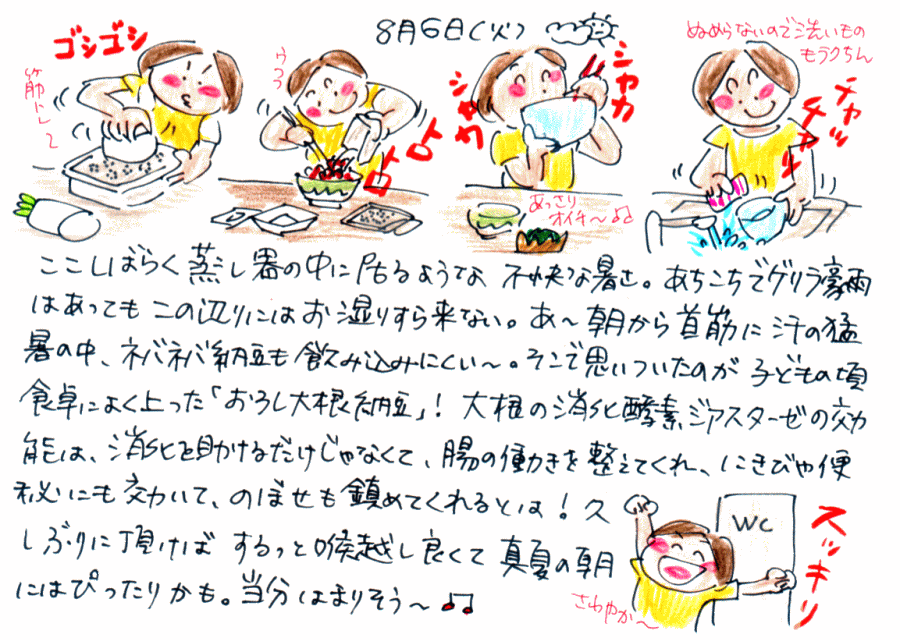 8月6日(火)
ゴシゴシ
筋トレ
シャカ
シャカ
あっさり
オイチ〜♪♪
ぬめらないので洗いもの
もうラクちん
チャッ
チャッ
ここしばらく蒸し器の中に居るような 不快な暑さ。あちこちでゲリラ豪雨
はあってもこの辺りにはお湿りすら来ない。あ〜朝から首筋に汗の猛
暑の中、ネバネバ納豆も飲み込みにくい〜。そこで思いついたのが 子どもの頃
食卓によく上った「おろし大根納豆」! 大根の消化酵素ジアスターゼの効
能は、消化を助けるだけじゃなくて、腸の働きを整えてくれ、にきびや便
秘にも効いて、のぼせも鎮めてくれるとは! 久
しぶりに頂けば するっと喉越し良くて 真夏の朝
にはぴったりかも。当分はまりそう〜♫
WC
スッキリ
さわやか〜